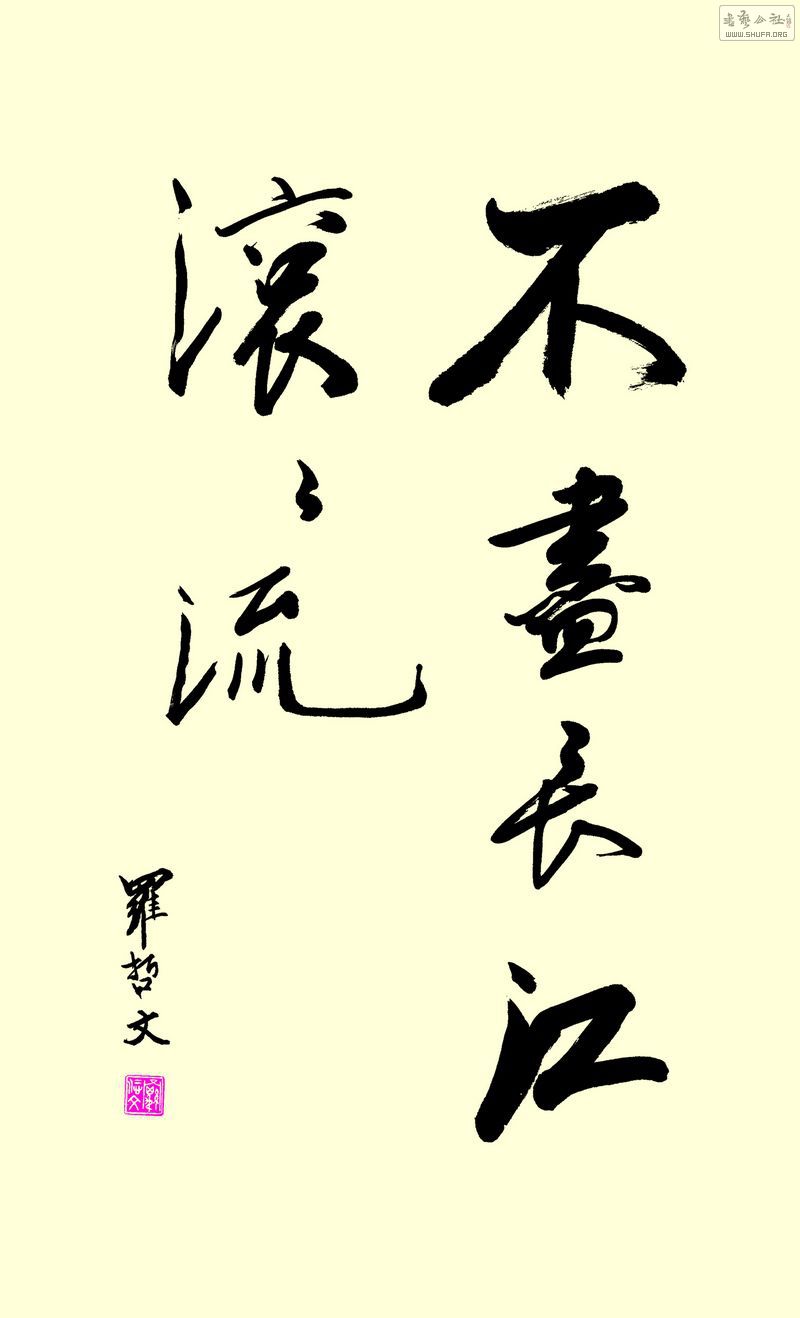 不盡長江
滾々流
羅哲文
書藝公社
WWW.SHUFA.ORG